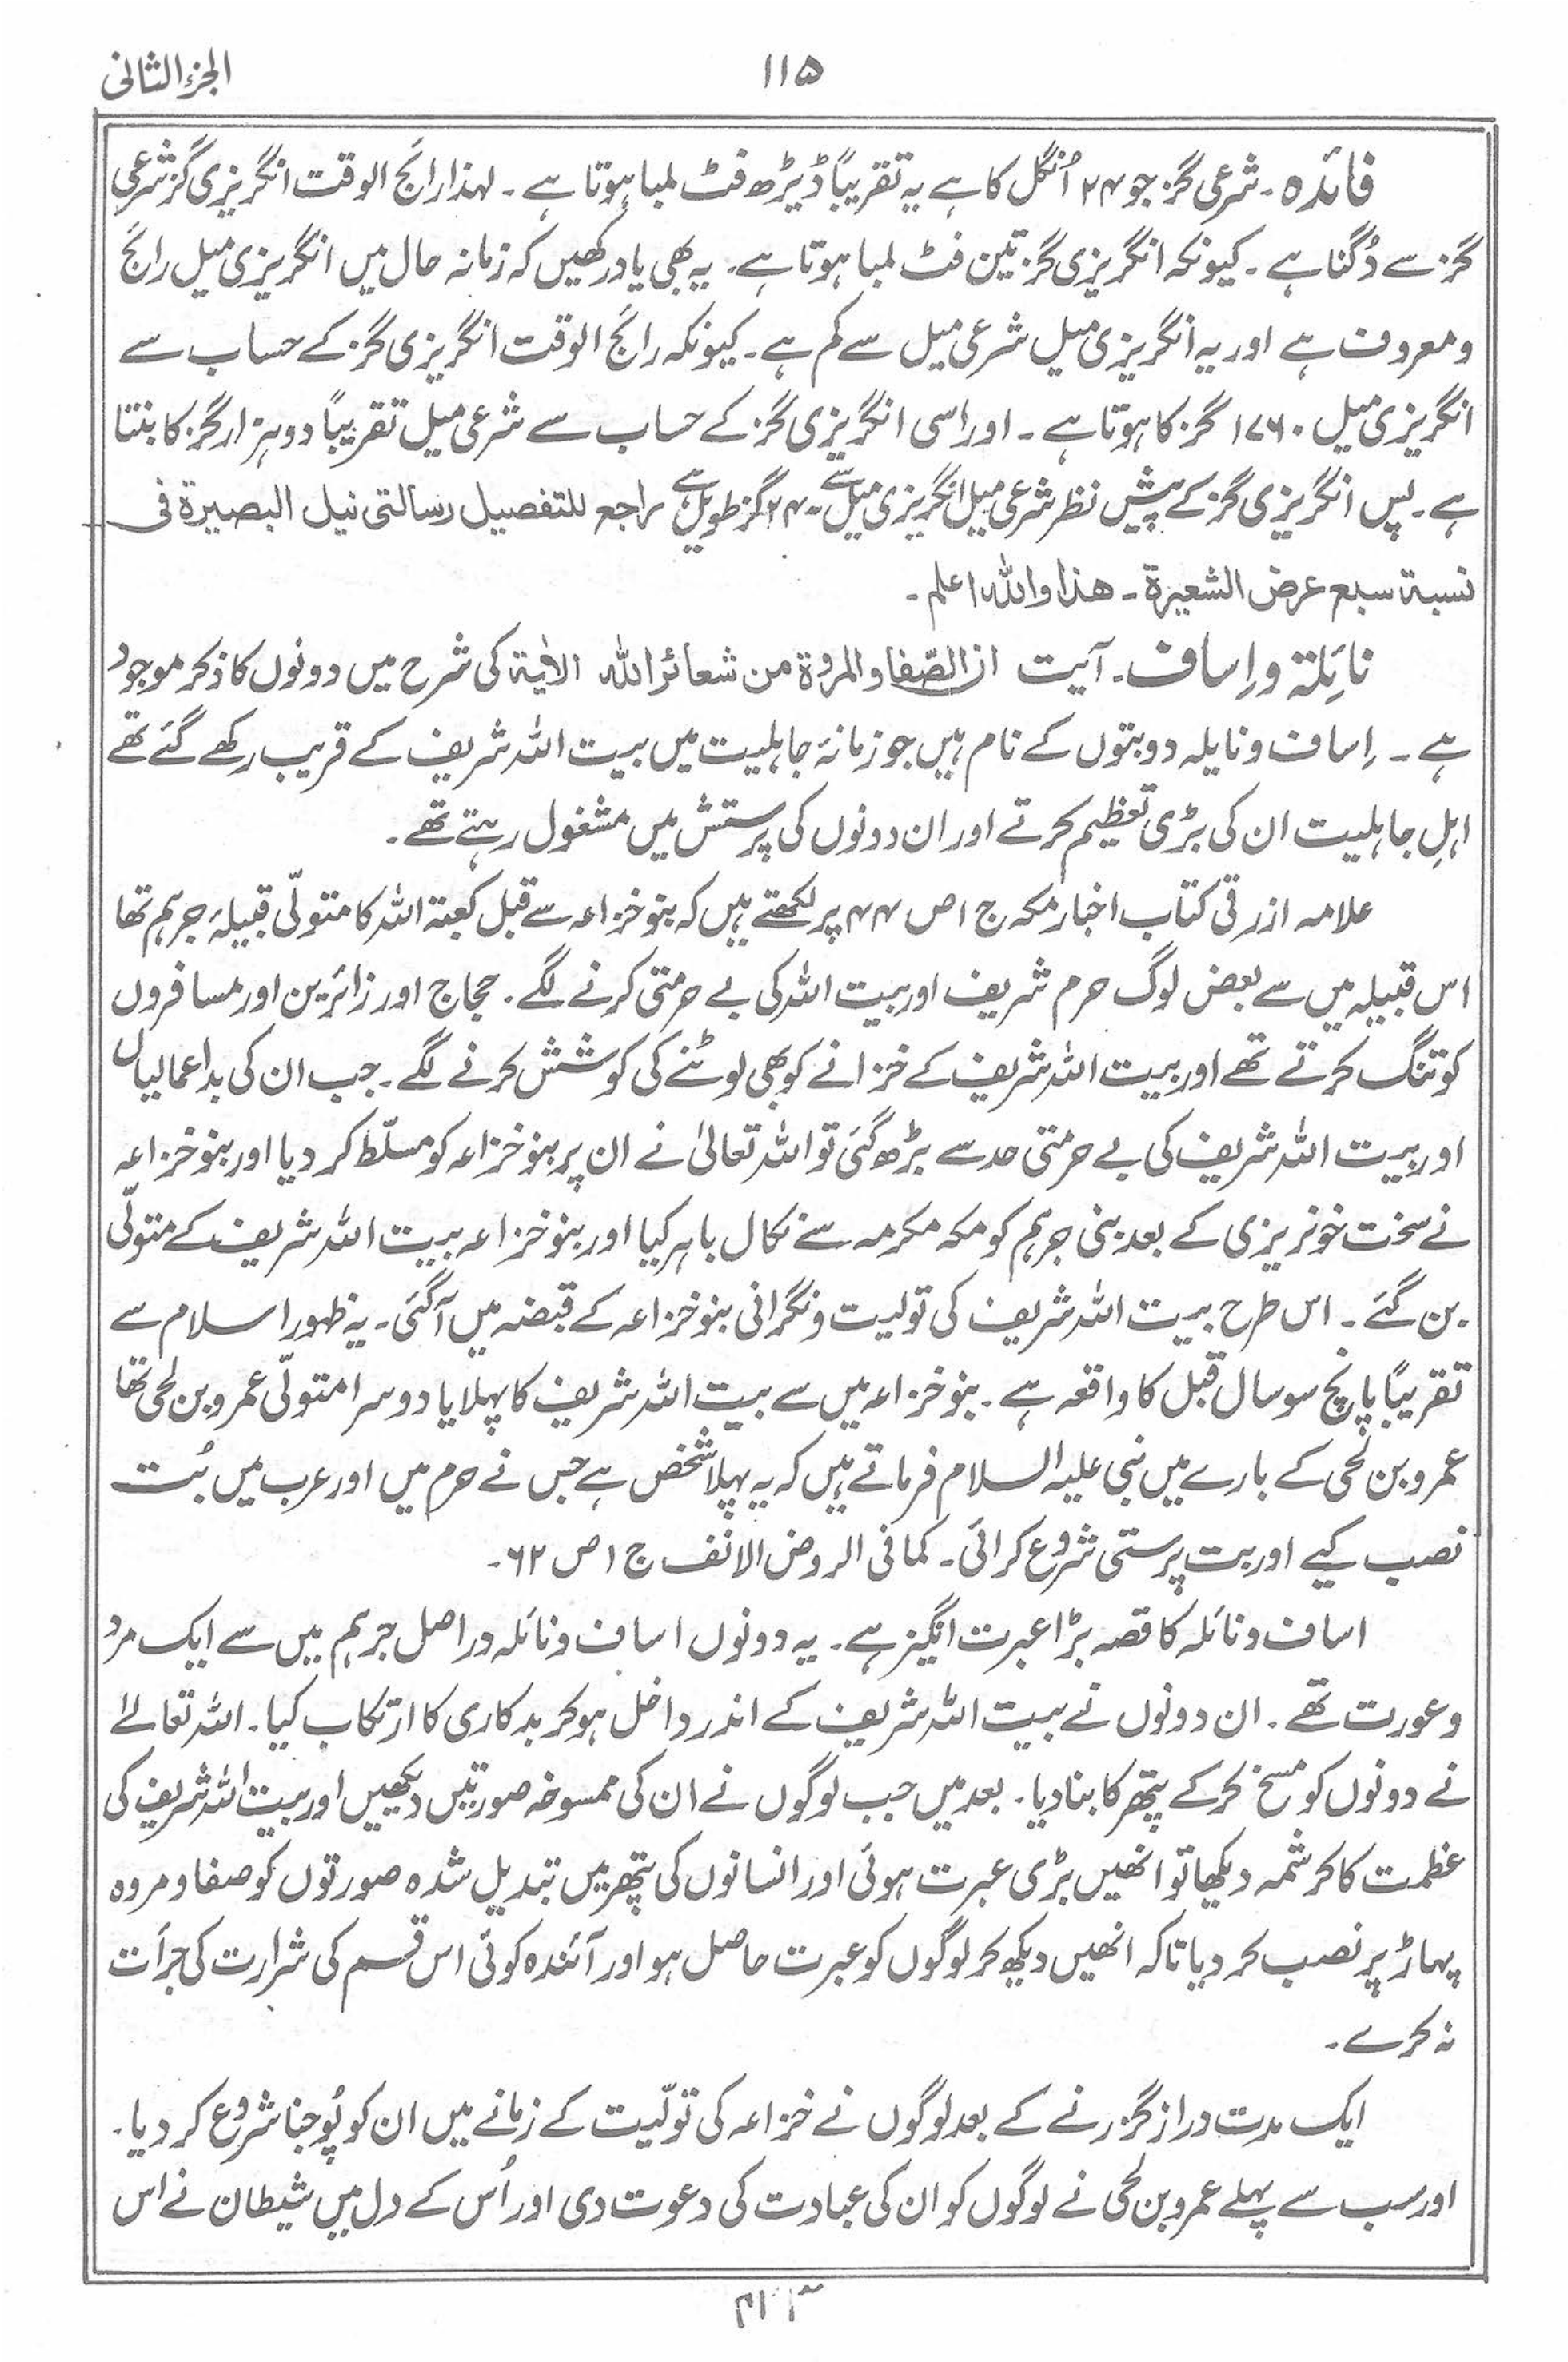 الجزء الثانی
۱۱۵
فائدہ ۔ شرعی گز جو ۲۴ اُنگل کا ہے یہ تقریباً ڈیڑھ فٹ لمبا ہوتا ہے ۔ لہذا رائج الوقت انگریزی گز شرعی
گز سے دُگنا ہے ۔ کیونکہ انگریزی گز تین فٹ لمبا ہوتا ہے ۔ یہ بھی یاد رکھیں کہ زمانہ حال میں انگریزی میل رائج
و معروف ہے اور یہ انگریزی میل شرعی میل سے کم ہے ۔ کیونکہ رائج الوقت انگریزی گز کے حساب سے
انگریزی میل ۱۷۶۰ گز کا ہوتا ہے ۔ اور اسی انگریزی گز کے حساب سے شرعی میل تقریباً دو ہزار گز کا بنتا
ہے ۔ پس انگریزی گز کے پیش نظر شرعی میل انگریزی میل سے ۲۴۰ گز طویل ہے راجع للتفصیل رسالتی نیل البصیرة فی
نسبة سبع عرض الشعیرة ۔ ھذا واللہ اعلم ۔
نائلة و اِساف ۔ آیت ان الصّفا والمروة من شعائر اللہ الاٰیة کی شرح میں دونوں کا ذکر موجود
ہے ۔ اِساف و نایلہ دو بتوں کے نام ہیں جو زمانۂ جاہلیت میں بیت اللہ شریف کے قریب رکھے گئے تھے
اہلِ جاہلیت ان کی بڑی تعظیم کرتے اور ان دونوں کی پرستش میں مشغول رہتے تھے ۔
علامہ ازرقی کتاب اخبار مکہ ج ۱ ص ۴۴ پر لکھتے ہیں کہ بنو خزاعہ سے قبل کعبۃ اللہ کا متولّی قبیلۂ جرہم تھا
اس قبیلہ میں سے بعض لوگ حرم شریف اور بیت اللہ کی بے حرمتی کرنے لگے ۔ حجاج اور زائرین اور مسافروں
کو تنگ کرتے تھے اور بیت اللہ شریف کے خزانے کو بھی لوٹنے کی کوشش کرنے لگے ۔ جب ان کی بداعمالیاں
اور بیت اللہ شریف کی بے حرمتی حد سے بڑھ گئی تو اللہ تعالیٰ نے ان پر بنو خزاعہ کو مسلّط کر دیا اور بنو خزاعہ
نے سخت خونریزی کے بعد بنی جرہم کو مکہ مکرمہ سے نکال باہر کیا اور بنو خزاعہ بیت اللہ شریف کے متولّی
بن گئے ۔ اس طرح بیت اللہ شریف کی تولیت و نگرانی بنو خزاعہ کے قبضہ میں آگئی ۔ یہ ظہور اسلام سے
تقریباً پانچ سو سال قبل کا واقعہ ہے ۔ بنو خزاعہ میں سے بیت اللہ شریف کا پہلا یا دوسرا متولّی عمرو بن لحی تھا
عمرو بن لحی کے بارے میں نبی علیہ السلام فرماتے ہیں کہ یہ پہلا شخص ہے جس نے حرم میں اور عرب میں بُت
نصب کیے اور بت پرستی شروع کرائی ۔ کما فی الروض الانف ج ۱ ص ۶۲ ۔
اساف و نائلہ کا قصہ بڑا عبرت انگیز ہے ۔ یہ دونوں اساف و نائلہ در اصل جرہم میں سے ایک مرد
و عورت تھے ۔ ان دونوں نے بیت اللہ شریف کے اندر داخل ہو کر بدکاری کا ارتکاب کیا ۔ اللہ تعالےٰ
نے دونوں کو مسخ کر کے پتھر کا بنا دیا ۔ بعد میں جب لوگوں نے ان کی ممسوخہ صورتیں دیکھیں اور بیت اللہ شریف کی
عظمت کا کرشمہ دیکھا تو انھیں بڑی عبرت ہوئی اور انسانوں کی پتھر میں تبدیل شدہ صورتوں کو صفا و مروہ
پہاڑ پر نصب کر دیا تاکہ انھیں دیکھ کر لوگوں کو عبرت حاصل ہو اور آئندہ کوئی اس قسم کی شرارت کی جرأت
نہ کرے ۔
ایک مدت دراز گزرنے کے بعد لوگوں نے خزاعہ کی تولّیت کے زمانے میں ان کو پُوجنا شروع کر دیا ۔
اور سب سے پہلے عمرو بن لحی نے لوگوں کو ان کی عبادت کی دعوت دی اور اُس کے دل میں شیطان نے اس